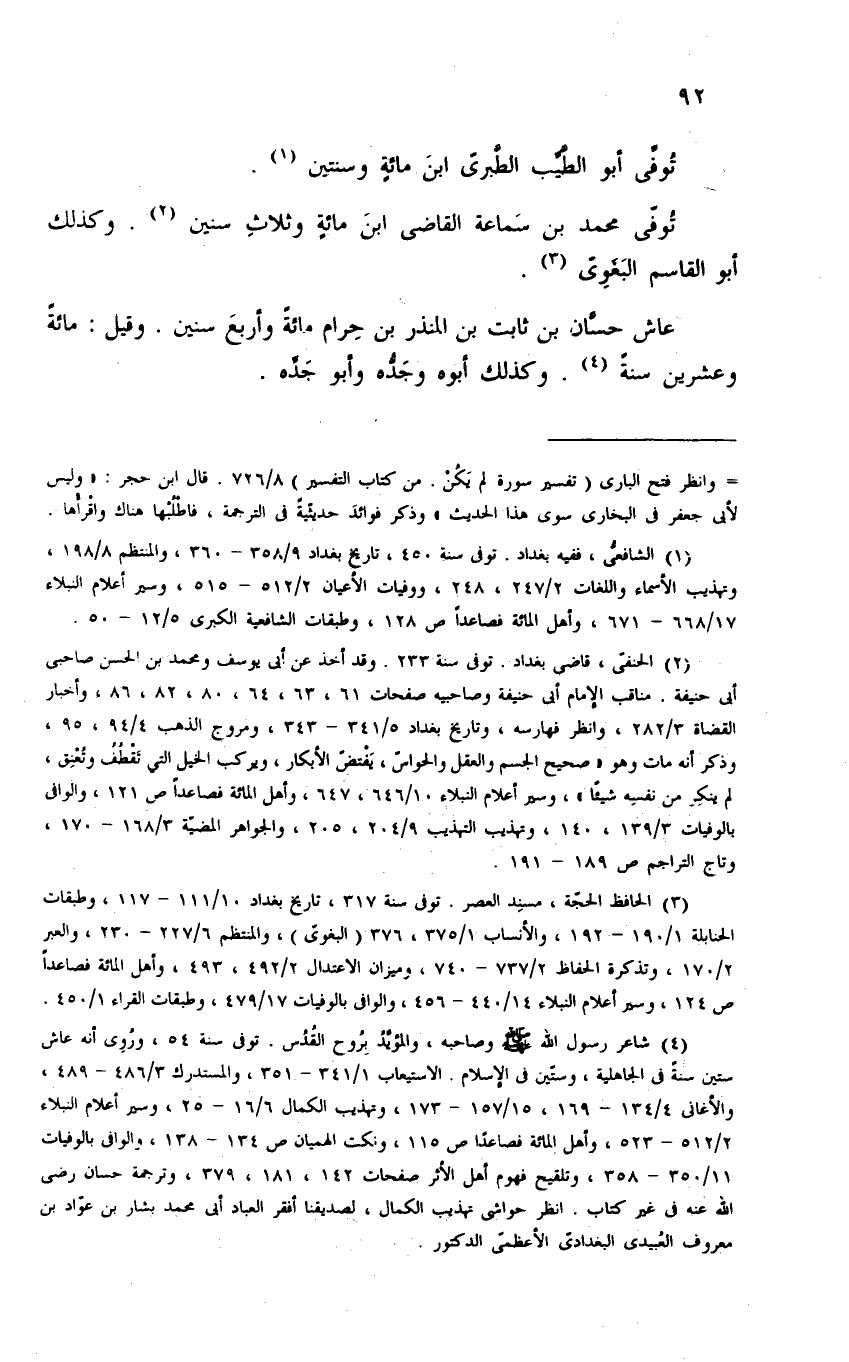 ٩٢
تُوفِّى أبو الطيِّب الطَّبرىّ ابنَ مائةٍ وسنتين (١) .
تُوفِّى محمد بن سَماعة القاضى ابنَ مائةٍ وثلاثِ سنين (٢) . وكذلك
أبو القاسم البَغَوِىّ (٣) .
عاش حسَّان بن ثابت بن المنذر بن حِرام مائةً وأربعَ سنين . وقيل : مائةً
وعشرين سنةً (٤) . وكذلك أبوه وجَدُّه وأبو جَدِّه .
= وانظر فتح البارى ( تفسير سورة لم يَكُنْ . من كتاب التفسير ) ٧٢٦/٨ . قال ابن حجر : « وليس
لأبى جعفر فى البخارى سوى هذا الحديث » وذكر فوائدَ حديثيّةً فى الترجمة ، فاطْلُبْها هناك واقْرأْها .
(١) الشافعىُّ ، فقيه بغداد . توفى سنة ٤٥٠ ، تاريخ بغداد ٣٥٨/٩ – ٣٦٠ ، والمنتظم ١٩٨/٨ ،
وتهذيب الأسماء واللغات ٢٤٧/٢ ، ٢٤٨ ، ووفيات الأعيان ٥١٢/٢ – ٥١٥ ، وسير أعلام النبلاء
٦٦٨/١٧ – ٦٧١ ، وأهل المائة فصاعداً ص ١٢٨ ، وطبقات الشافعية الكبرى ١٢/٥ – ٥٠ .
(٢) الحنفىّ ، قاضي بغداد . توفى سنة ٢٣٣ . وقد أخذ عن أبى يوسف ومحمد بن الحسن صاحبى
أبى حنيفة . مناقب الإمام أبى حنيفة وصاحبيه صفحات ٦١ ، ٦٣ ، ٦٤ ، ٨٠ ، ٨٢ ، ٨٦ ، وأخبار
القضاة ٢٨٢/٣ ، وانظر فهارسه ، وتاريخ بغداد ٣٤١/٥ – ٣٤٣ ، ومروج الذهب ٩٤/٤ ، ٩٥ ،
وذكر أنه مات وهو « صحيح الجسم والعقل والحواسّ ، يَفْتضّ الأبكار ، ويركب الخيل التي تَقْطُفُ وتُعْنِق ،
لم ينكِر من نفسِه شيئًا » ، وسير أعلام النبلاء ٦٤٦/١٠ ، ٦٤٧ ، وأهل المائة فصاعداً ص ١٢١ ، والوافى
بالوفيات ١٣٩/٣ ، ١٤٠ ، وتهذيب التهذيب ٢٠٤/٩ ، ٢٠٥ ، والجواهر المضيّة ١٦٨/٣ – ١٧٠ ،
وتاج التراجم ص ١٨٩ – ١٩١ .
(٣) الحافظ الحجّة ، مسنِد العصر . توفى سنة ٣١٧ ، تاريخ بغداد ١١١/١٠ – ١١٧ ، وطبقات
الحنابلة ١٩٠/١ – ١٩٢ ، والأنساب ٣٧٥/١ ، ٣٧٦ ( البغوىّ ) ، والمنتظم ٢٢٧/٦ – ٢٣٠ ، والعبر
١٧٠/٢ ، وتذكرة الحفاظ ٧٣٧/٢ – ٧٤٠ ، وميزان الاعتدال ٤٩٢/٢ ، ٤٩٣ ، وأهل المائة فصاعداً
ص ١٢٤ ، وسير أعلام النبلاء ٤٤٠/١٤ – ٤٥٦ ، والوافى بالوفيات ٤٧٩/١٧ ، وطبقات القراء ٤٥٠/١ .
(٤) شاعر رسول الله ﷺ وصاحبه ، والمؤيَّدُ بِرُوح القُدُس . توفى سنة ٥٤ ، ورُوِى أنه عاش
ستين سنةً فى الجاهلية ، وستّين فى الإسلام . الاستيعاب ٣٤١/١ – ٣٥١ ، والمستدرك ٤٨٦/٣ – ٤٨٩ ،
والأغانى ١٣٤/٤ – ١٦٩ ، ١٥٧/١٥ – ١٧٣ ، وتهذيب الكمال ١٦/٦ – ٢٥ ، وسير أعلام النبلاء
٥١٢/٢ – ٥٢٣ ، وأهل المائة فصاعدًا ص ١١٥ ، ونكت الهميان ص ١٣٤ – ١٣٨ ، والوافى بالوفيات
٣٥٠/١١ – ٣٥٨ ، وتلقيح فهوم أهل الأثر صفحات ١٤٢ ، ١٨١ ، ٣٧٩ ، وترجمة حسان رضى
الله عنه فى غير كتاب . انظر حواشى تهذيب الكمال ، لصديقنا أفقر العباد أبى محمد بشار بن عوّاد بن
معروف العُبيدى البغدادىّ الأعظمىّ الدكتور .